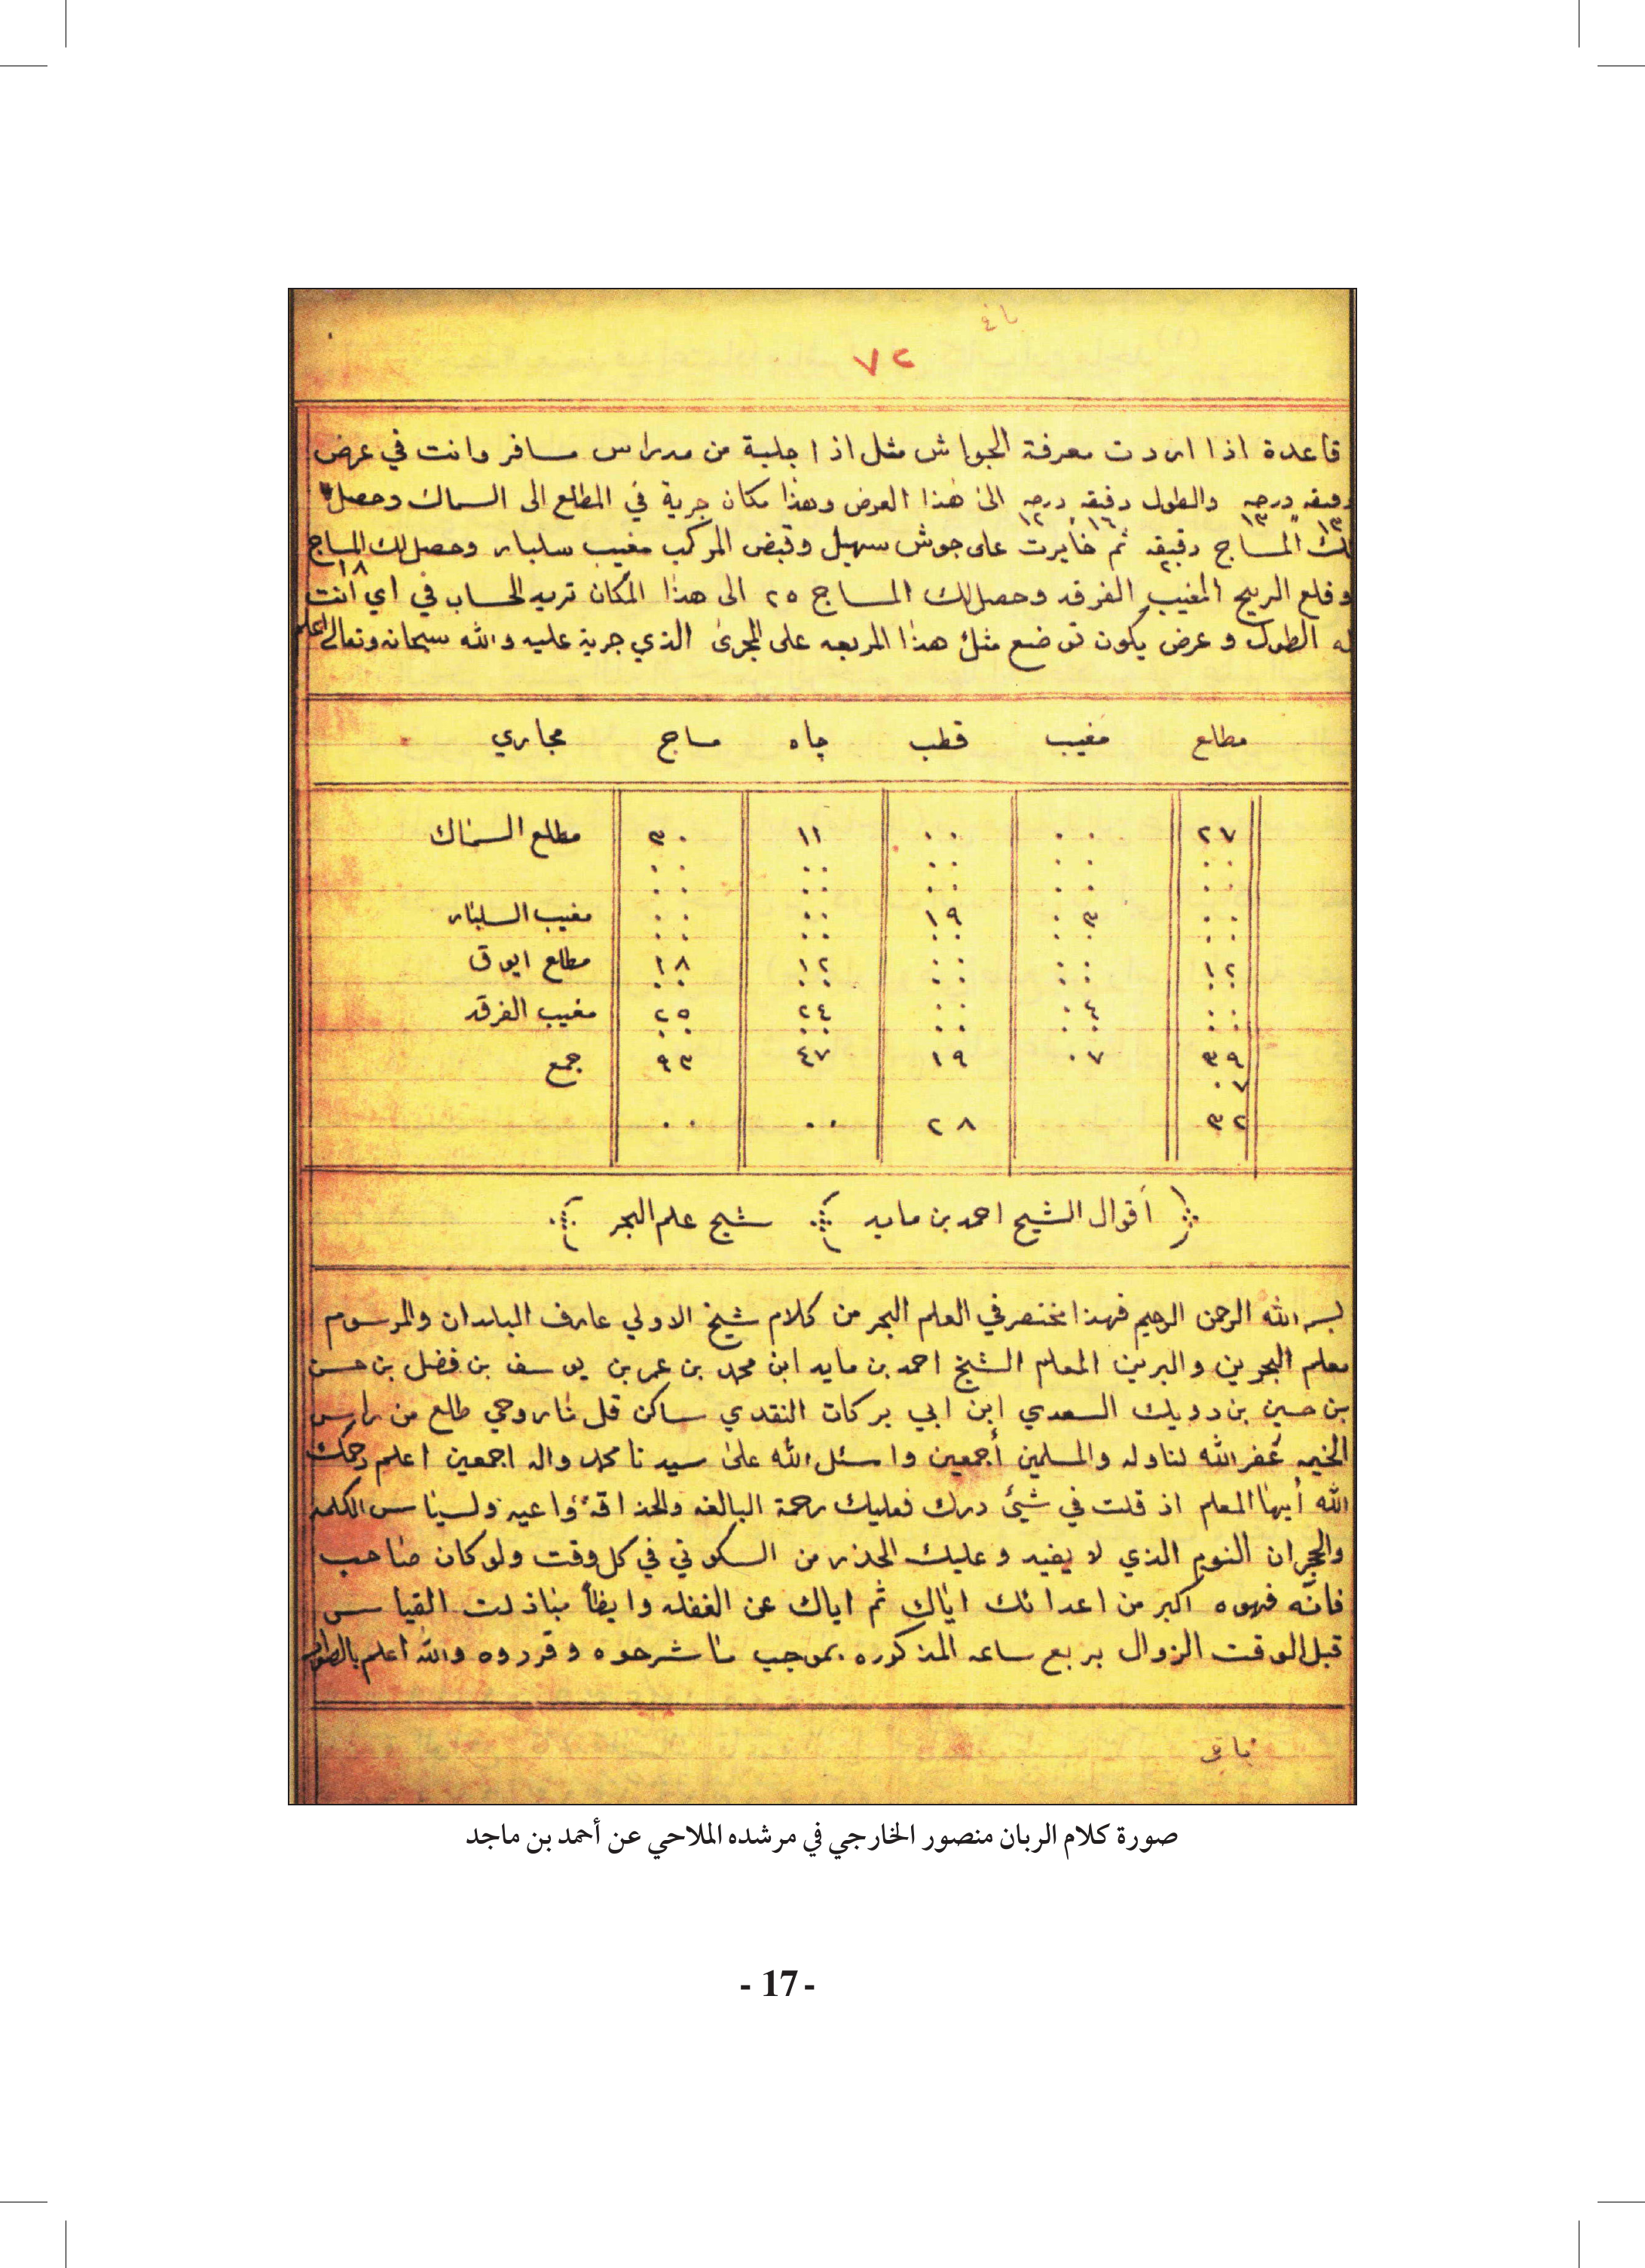 ٧٢
قاعدة اذا اردت معرفة الجواش مثل اذا جلبة من مدراس مسافر وانت في عرض
دقيقه درجه والطول دقيقه درجه الى هذا العرض وهذا مكان جرية في المطلع الى السماك وحصل
١٣ ١٣ ١٦ ١٢
لك المساج دقيقه ثم خايرت على جوش سهيل وقبض المركب مغيب سلبار وحصل لك المساج
٢ ١٨
وقلع الريح المغيب الفرقد وحصل لك المساج ٢٥ الى هذا المكان تريد الحساب في اي انت
له الطول وعرض يكون توضع مثل هذا المربعه على المجرى الذي جرية عليه والله سبحانه وتعالى اعلم
مطلع مغيب قطب جاه مساج مجاري
٢٧ ٠٠ ٠٠ ١١ ٣٠ مطلع السماك
٠٠ ٠٠ ٠٠ ٠٠ ٠٠
٠٠ ٠٠ ٠٠ ٠٠ ٠٠
٠٠ ٠٣ ١٩ ٠٠ ٠٠ مغيب السلبار
٠٠ ٠٠ ٠٠ ٠٠ ٠٠
١٢ ٠٠ ٠٠ ١٢ ١٨ مطلع ايوق
٠٠ ٠٠ ٠٠ ٠٠ ٠٠
٠٠ ٠٤ ٠٠ ٢٤ ٢٥ مغيب الفرقد
٠٠ ٠٠ ٠٠ ٠٠ ٠٠
٣٩ ٠٧ ١٩ ٤٧ ٩٣ جمع
٠٧
٣٢ ٢٨ ٠٠ ٠٠
أقوال الشيخ احمد بن مايد شيخ علم البحر
بسم الله الرحمن الرحيم فهذا مختصر في العلم البحر من كلام شيخ الاولي عارف البلدان والمرسوم
معلم البحرين والبرين المعلم الشيخ احمد بن مايد ابن محمد بن عمر بن يوسف بن فضل بن حسن
بن حسين بن دويك السعدي ابن ابي بركات النقدي ساكن طلع من راس
الخيمه غفر الله لنا وله والمسلمين أجمعين واسئل الله على سيدنا محمد واله اجمعين اعلم رحمك
الله أيها المعلم اذ قلت في شئ درك فعليك رحمة البالغه والحذاقة الكلمه
والهجران النوم الذي لا يفيد وعليك الحذر من السكوني في كل وقت ولو كان صاحب
فانّه فهوه اكبر من اعدائك اياك ثم اياك عن الغفله وايظاً القياس
قبل الوقت الزوال بربع ساعه المذكوره بموجب ما شرحوه وقرروه والله اعلم
صورة كلام الربان منصور الخارجي في مرشده الملاحي عن أحمد بن ماجد
- 17 -